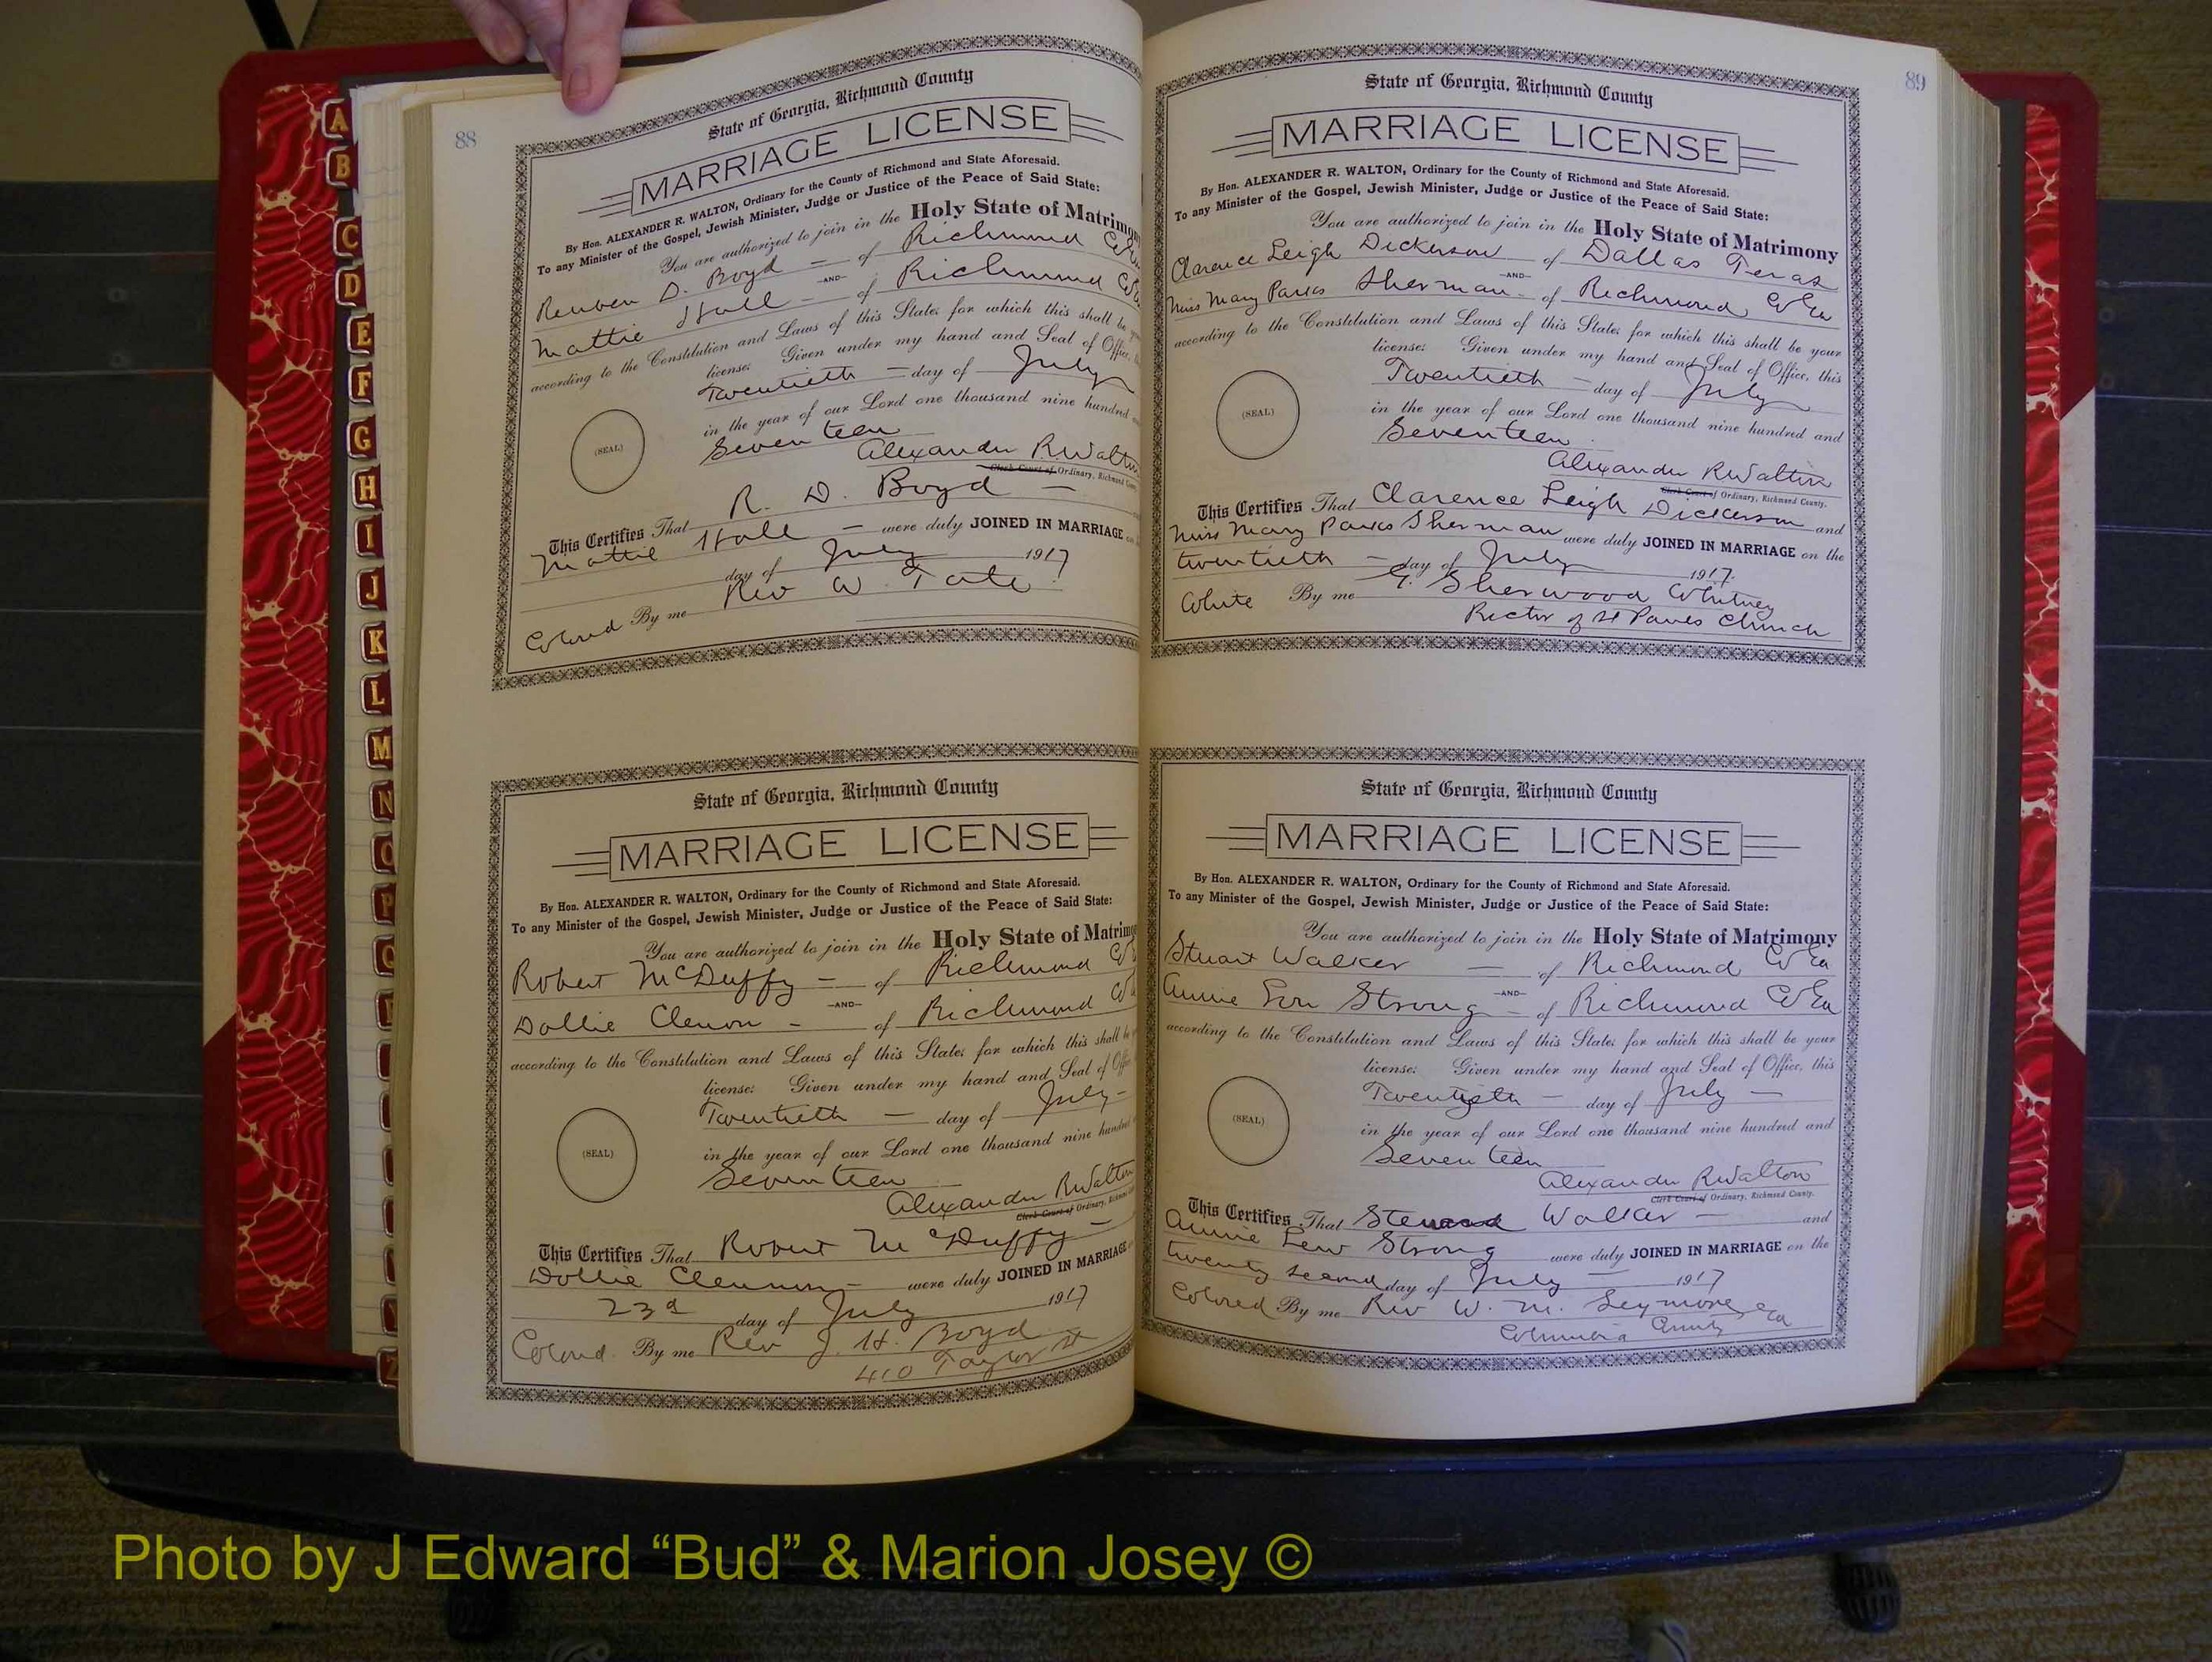 88
State of Georgia, Richmond County
MARRIAGE LICENSE
By Hon. ALEXANDER R. WALTON, Ordinary for the County of Richmond and State Aforesaid.
To any Minister of the Gospel, Jewish Minister, Judge or Justice of the Peace of Said State:
You are authorized to join in the Holy State of Matrimony
Reuben D. Boyd — of Richmond Co
—AND—
Mattie Hall — of Richmond Co
according to the Constitution and Laws of this State; for which this shall be
license: Given under my hand and Seal of Office,
Twentieth — day of July
in the year of our Lord one thousand nine hundred
Seventeen
Alexander R Walton
Clerk Court of Ordinary, Richmond County
This Certifies That R. D. Boyd —
Mattie Hall — were duly JOINED IN MARRIAGE
day of July 1917
Colored By me Rev W. Tate
State of Georgia, Richmond County
MARRIAGE LICENSE
By Hon. ALEXANDER R. WALTON, Ordinary for the County of Richmond and State Aforesaid.
To any Minister of the Gospel, Jewish Minister, Judge or Justice of the Peace of Said State:
You are authorized to join in the Holy State of Matrimo
Robert McDuffy — of Richmond Co
—AND—
Dollie Clemon - of Richmond Co
according to the Constitution and Laws of this State; for which this shall be
license: Given under my hand and Seal of Offi
Twentieth — day of July -
(SEAL)
in the year of our Lord one thousand nine hundred
Seventeen
Alexander R Walton
Clerk Court of Ordinary,
This Certifies That Robert McDuffy —
Dollie — were duly JOINED IN MARRIAGE
23d day of July 1917
Colored By me Rev J. H. Boyd
410 Taylor St
89
State of Georgia, Richmond County
MARRIAGE LICENSE
By Hon. ALEXANDER R. WALTON, Ordinary for the County of Richmond and State Aforesaid.
To any Minister of the Gospel, Jewish Minister, Judge or Justice of the Peace of Said State:
You are authorized to join in the Holy State of Matrimony
Clarence Leigh Dickerson of Dallas Texas
—AND—
Miss Mary Parks Sherman - of Richmond Co Ga
according to the Constitution and Laws of this State; for which this shall be your
license: Given under my hand and Seal of Office, this
Twentieth — day of July
(SEAL)
in the year of our Lord one thousand nine hundred and
Seventeen
Alexander R Walton
Clerk Court of Ordinary, Richmond County.
This Certifies That Clarence Leigh Dickerson and
Miss Mary Parks Sherman were duly JOINED IN MARRIAGE on the
twentieth — day of July 1917.
White By me G. Sherwood Whitney
Rector of St Pauls Church
State of Georgia, Richmond County
MARRIAGE LICENSE
By Hon. ALEXANDER R. WALTON, Ordinary for the County of Richmond and State Aforesaid.
To any Minister of the Gospel, Jewish Minister, Judge or Justice of the Peace of Said State:
You are authorized to join in the Holy State of Matrimony
Stuart Walker — of Richmond Co Ga
—AND—
Annie Strong - of Richmond Co Ga
according to the Constitution and Laws of this State; for which this shall be your
license: Given under my hand and Seal of Office, this
Twentieth — day of July —
(SEAL)
in the year of our Lord one thousand nine hundred and
Seventeen
Alexander R Walton
Clerk Court of Ordinary, Richmond County.
This Certifies That Walker — and
Annie Lew Strong were duly JOINED IN MARRIAGE on the
twenty second day of July — 1917
Colored By me Rev W. M. Seymore Ga
Columbia County
A
B
C
D
E
F
G
H
I
J
K
L
M
N
P
Z
Photo by J Edward “Bud” & Marion Josey ©